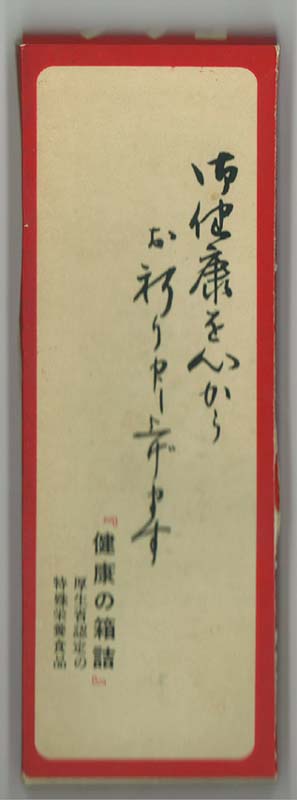 御健康を心から
お祈り申し上げます
『健康の箱詰』
厚生省認定の
特殊栄養食品